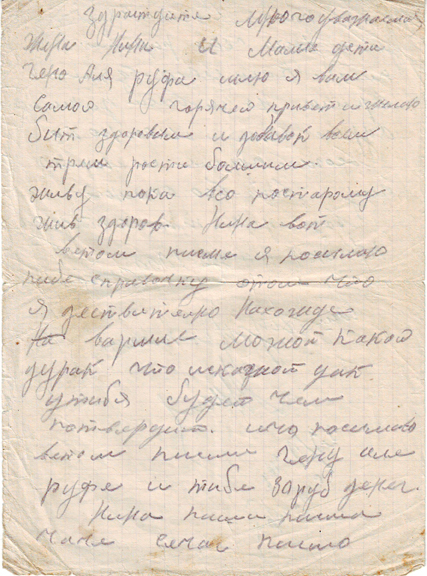 здраствуите Многоуважаемая
жина Нина и Малие дети
гена Аля руфа шлю я вам
самоя горячей привет и желаю
бит здоровим и
рости болшим.
живу пока всо постарому
жив здоров Нина вот
ветом писме я посилаю
тибе справочку отом что
я дествително Нахожус
На вармие можот какой
дурак что скажот дак
утибя будет чем
потвердит. ищо посилаю
ветом писме гену але
руфе и тибе 3 руб денег.
Нина пиши писма
чаше писмо